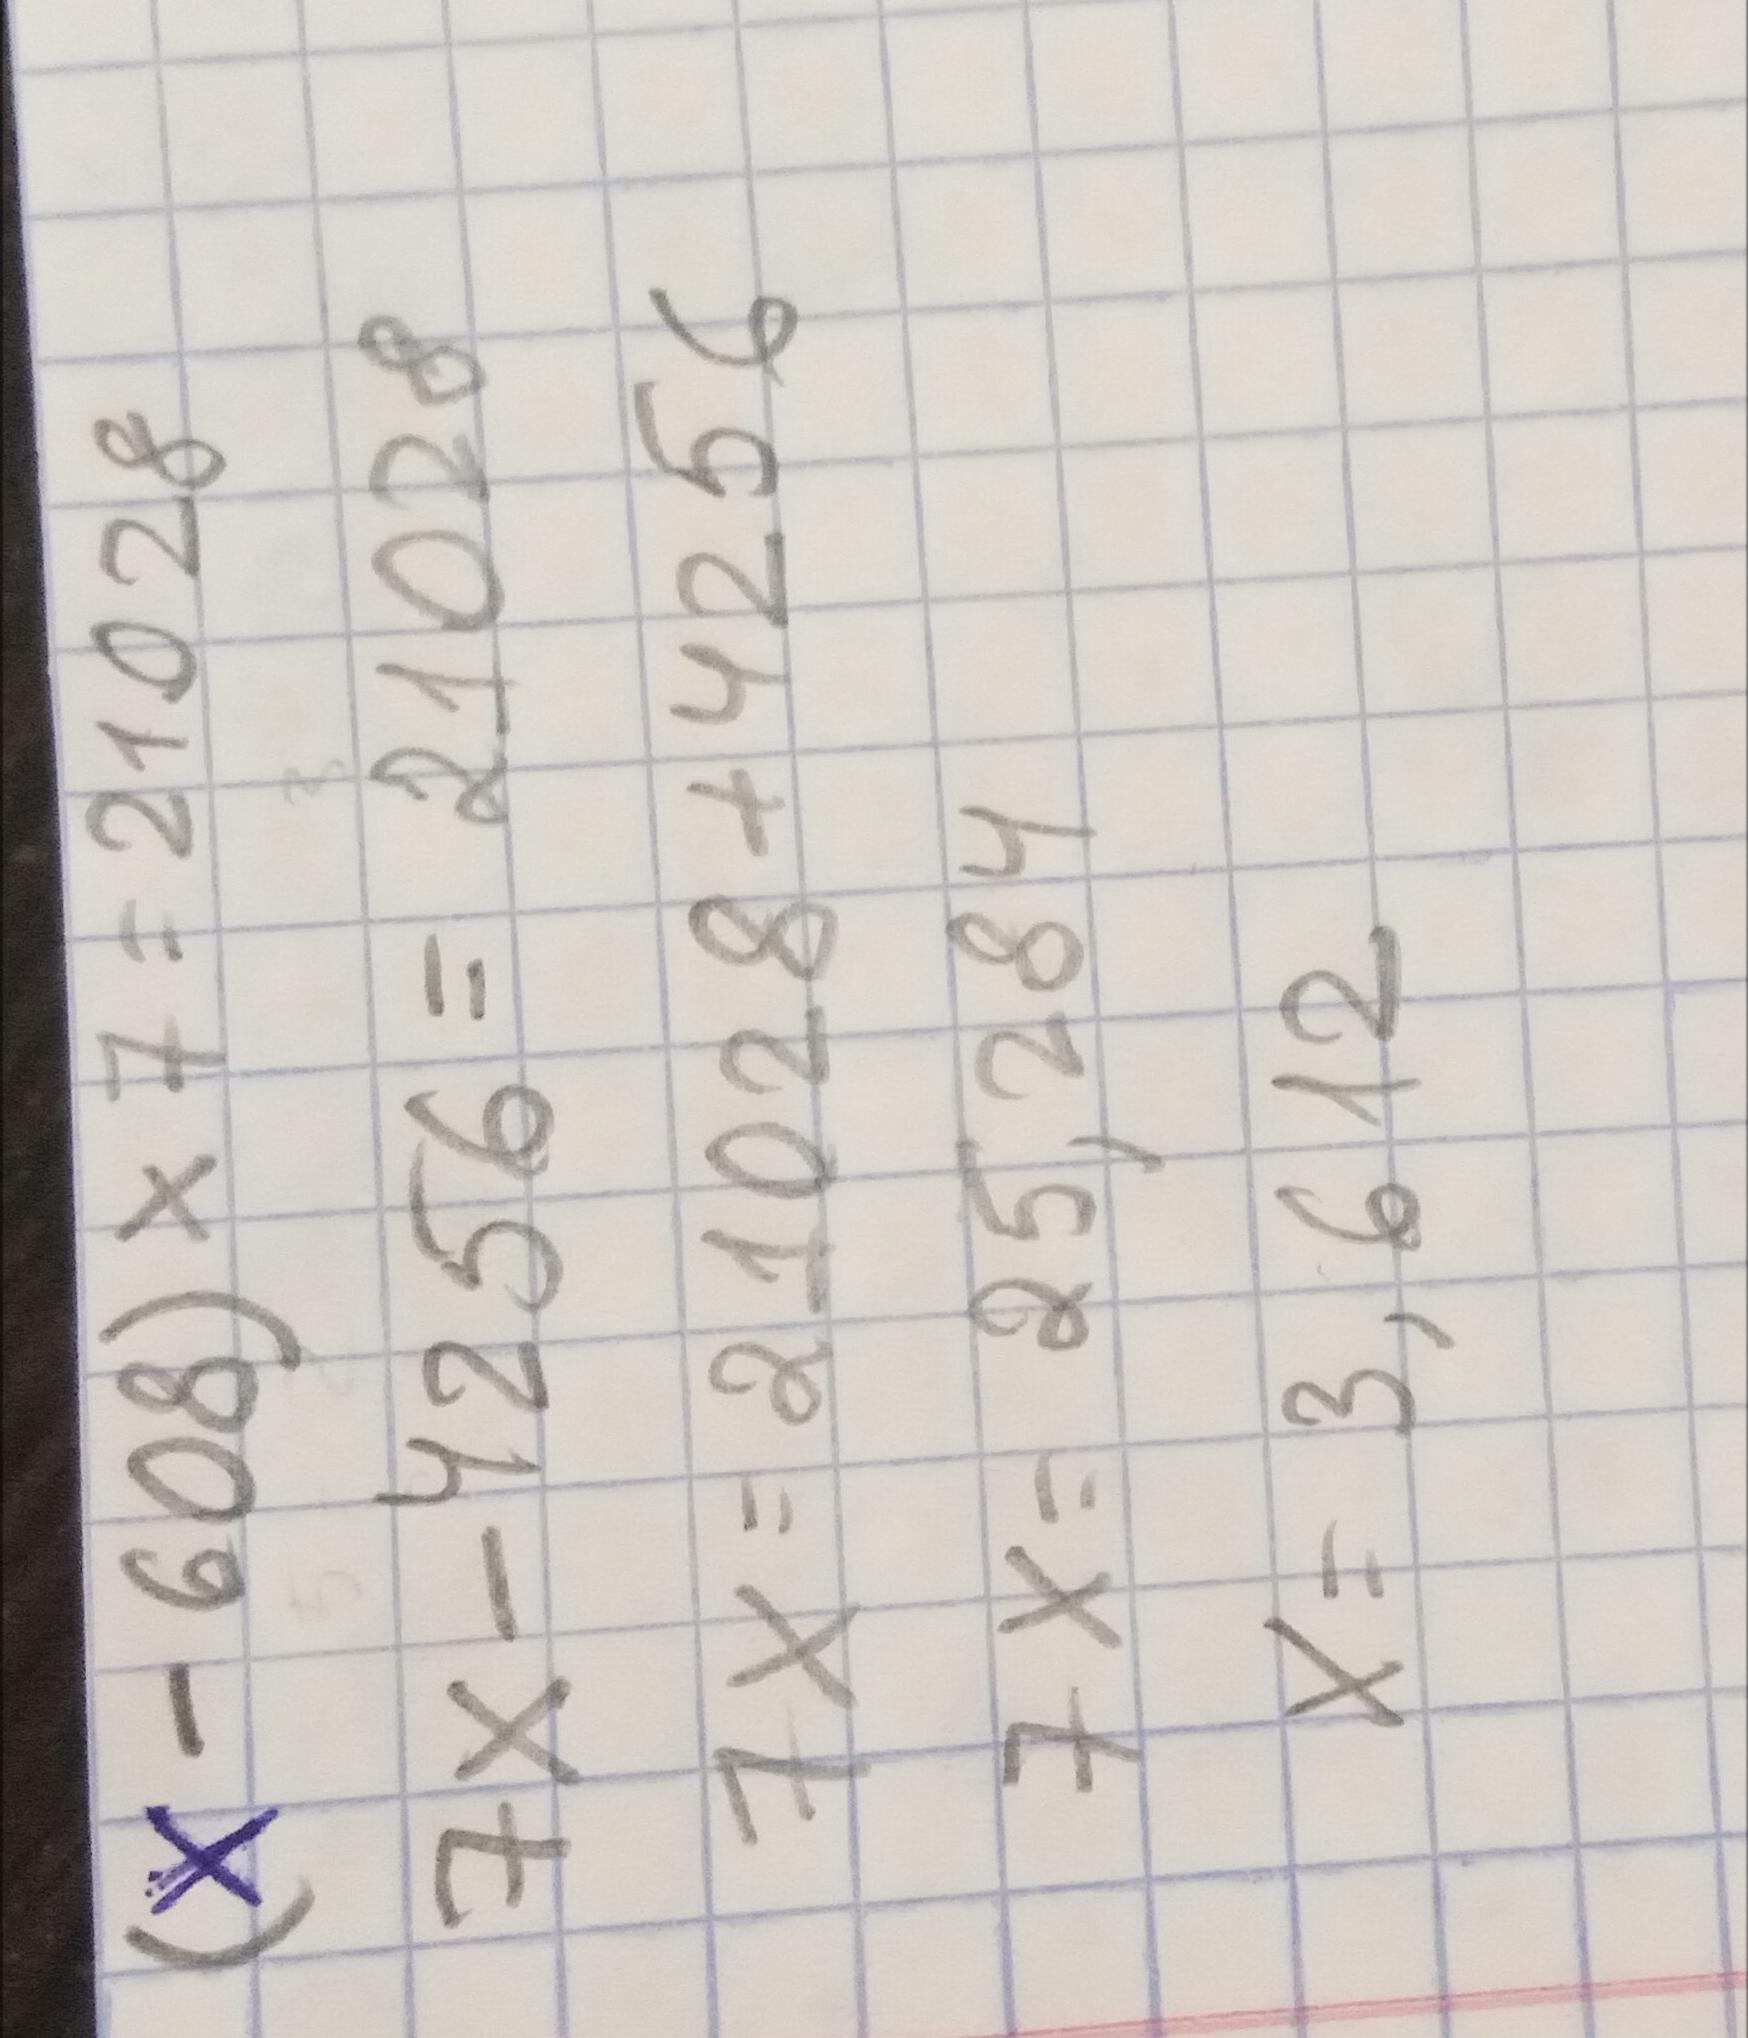 (x - 608) x 7 = 21028
7x - 4256 = 21028
7x = 21028 + 4256
7x = 25,284
x = 3,612